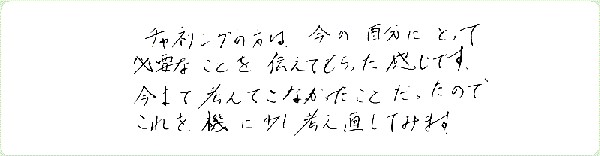 チャネリングの方は、今の自分にとって
必要なことを伝えてもらった感じです。
今まで考えてこなかったことだったので
これを機に少し考え直してみます。